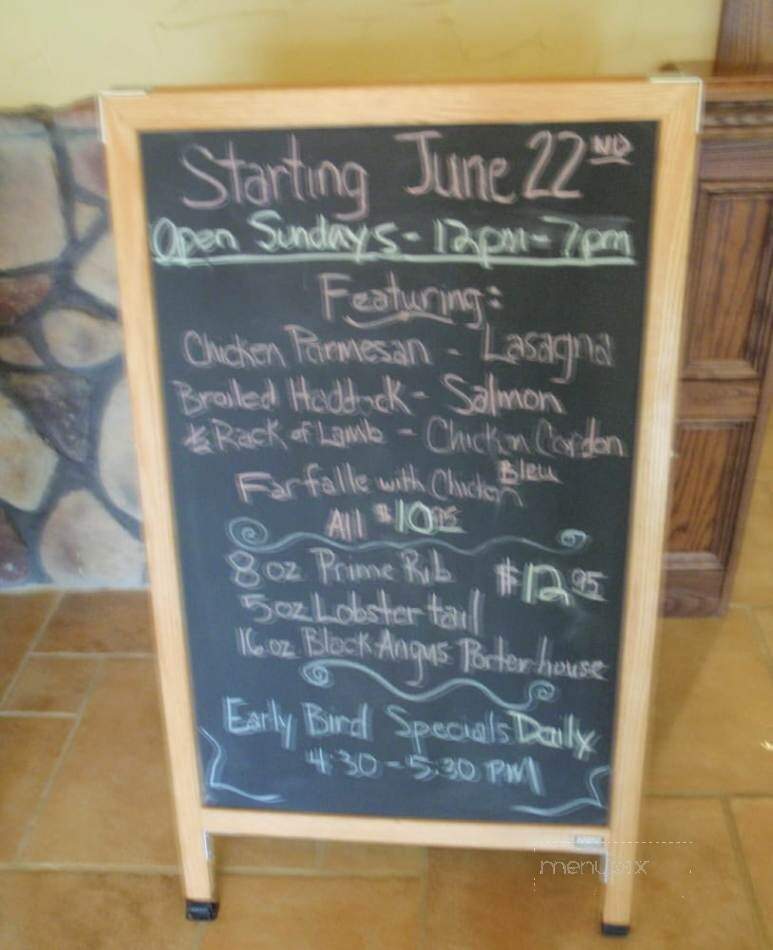 Starting June 22ND
Open Sundays - 12pm - 7pm
Featuring:
Chicken Parmesan - Lasagna
Broiled Haddock - Salmon
½ Rack of Lamb - Chicken Cordon
Bleu
Farfalle with Chicken
All $10.95
8 oz Prime Rib $12.95
5 oz Lobster tail
16 oz Black Angus Porterhouse
Early Bird Specials Daily
4:30 - 5:30 PM
menupix